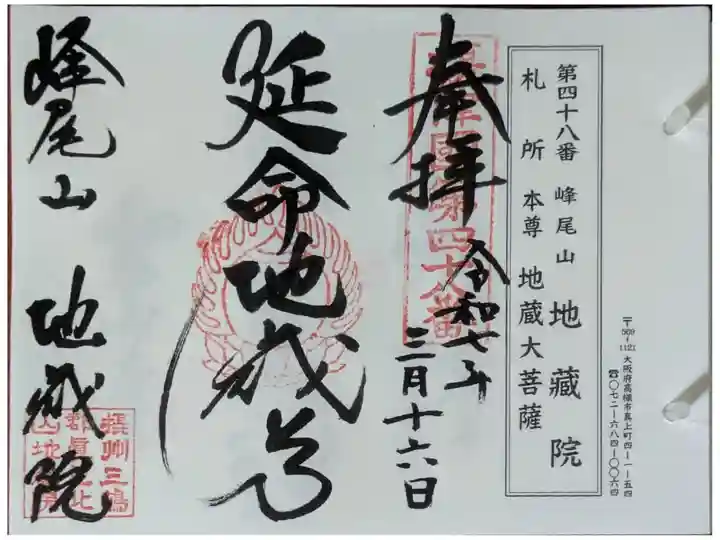 〒569-1121 大阪府高槻市真上町四ー一ー五四
☎〇七二ー六八四ー〇〇六四
第四十八番 峰尾山 地藏院
札所本尊 地蔵大菩薩
奉拝 令和七年
三月十六日
摂津國第四十八番
延命地蔵尊
峰尾山 地蔵院